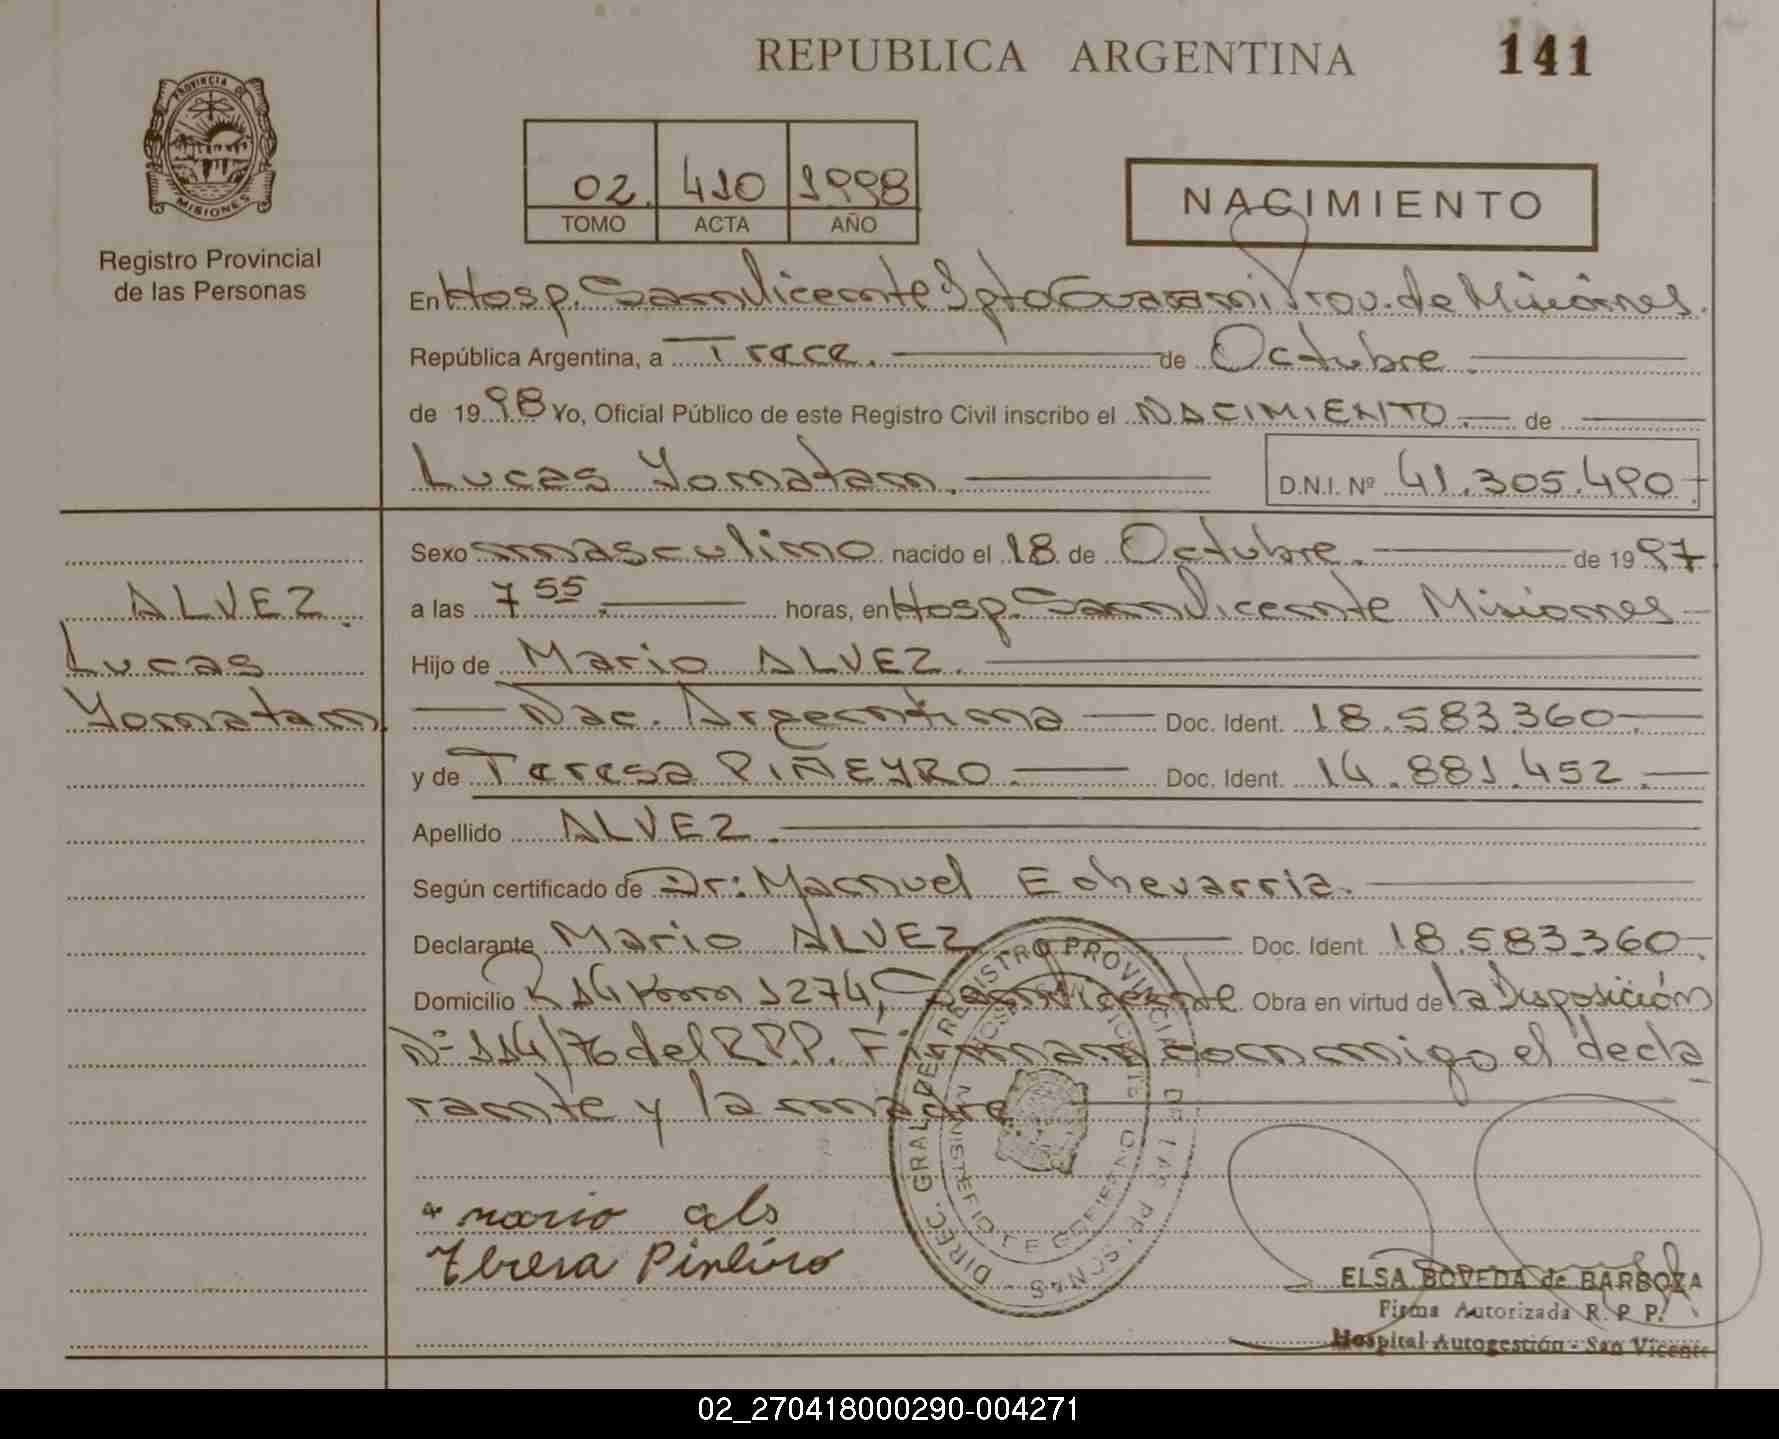 REPUBLICA ARGENTINA 141
PROVINCIA DE
MISIONES
Registro Provincial
de las Personas
02 410 1998
TOMO ACTA AÑO
NACIMIENTO
En Hosp. San Vicente Dpto Guarani Prov. de Misiones.
República Argentina, a Trece. de Octubre
de 1998 Yo, Oficial Público de este Registro Civil inscribo el NACIMIENTO de
Lucas Yonatan. D.N.I. Nº 41.305.490
Sexo masculino nacido el 18 de Octubre. de 1997
ALVEZ
Lucas
Yonatan
a las 7 55 horas, en Hosp. San Vicente Misiones
Hijo de Mario ALVEZ.
Nac. Argentina Doc. Ident. 18.583.360
y de Teresa PIÑEYRO Doc. Ident. 14.881.452
Apellido ALVEZ.
Según certificado de Dr: Manuel Echevarria.
Declarante Mario ALVEZ Doc. Ident. 18.583.360
Domicilio R 14 Km 1274, San Vicente Obra en virtud de la Disposición
Nº 114/76 del R.P.P. Firman conmigo el decla
rante y la madre
DIREC. GRAL. DEL REGISTRO PROVINCIAL DE LAS PERSONAS
MINISTERIO DE GOBIERNO
mario als
Teresa Piñeiro
ELSA BOVEDA de BARBOZA
Firma Autorizada R. P. P.
Hospital Autogestión - San Vicente
02_270418000290-004271